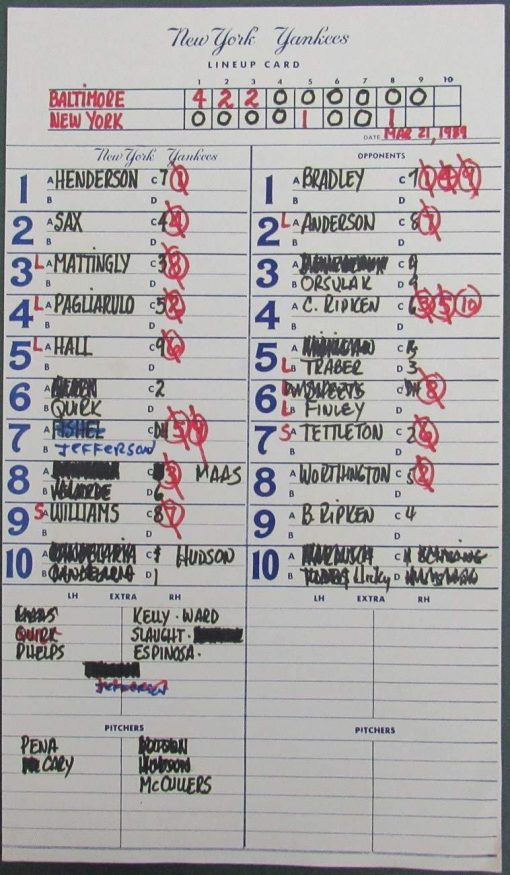 New York Yankees
LINEUP CARD
1 2 3 4 5 6 7 8 9 10
BALTIMORE 4 2 2 0 0 0 0 0 0
NEW YORK 0 0 0 0 1 0 0 1
DATE MAR 21, 1989
New York Yankees OPPONENTS
1 A HENDERSON C 7 1
B D
1 A BRADLEY C 7 1
B D
2 A SAX C 4 4
B D
2 L A ANDERSON C 8 7
B D
3 L A MATTINGLY C 3 8
B D
3 A C 9
B ORSULAK D 9
4 L A PAGLIARULO C 5 2
B D
4 A C. RIPKEN C 6 3 5 10
B D
5 L A HALL C 9 6
B D
5 A C
L B TRABER D 3
6 A C 2
B QUIRK D
6 L A SHEETS C DH 8
L B FINLEY D
7 A FISHEL C DH 5 9
B JEFFERSON D
7 S A TETTLETON C 2 6
B D
8 A C 3 MAAS
B VELARDE D 6
8 A WORTHINGTON C 5 2
B D
9 S A WILLIAMS C 8 7
B D
9 A B. RIPKEN C 4
B D
10 A CANDELARIA C 1 HUDSON
B CANDELARIA D 1
10 A C
B Hickey D
LH EXTRA RH
LH EXTRA RH
KELLY · WARD
QUIRK SLAUGHT ·
PHELPS ESPINOSA ·
JEFFERSON
PITCHERS
PITCHERS
PENA
McCARY HUDSON
McCULLERS